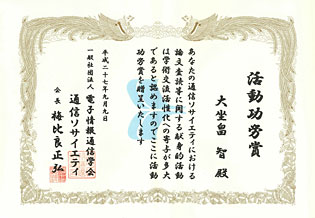 活動功労賞
大坐畠 智 殿
あなたの通信ソサイエティにおける
論文査読等に関する献身的活動
は学術交流活性化への寄予が多大
であると認めますのでここに活動
功労賞を贈呈いたします
平成二十七年九月九日
一般社団法人 電子情報通信学会
通信ソサイエティ
会長 梅比良正弘